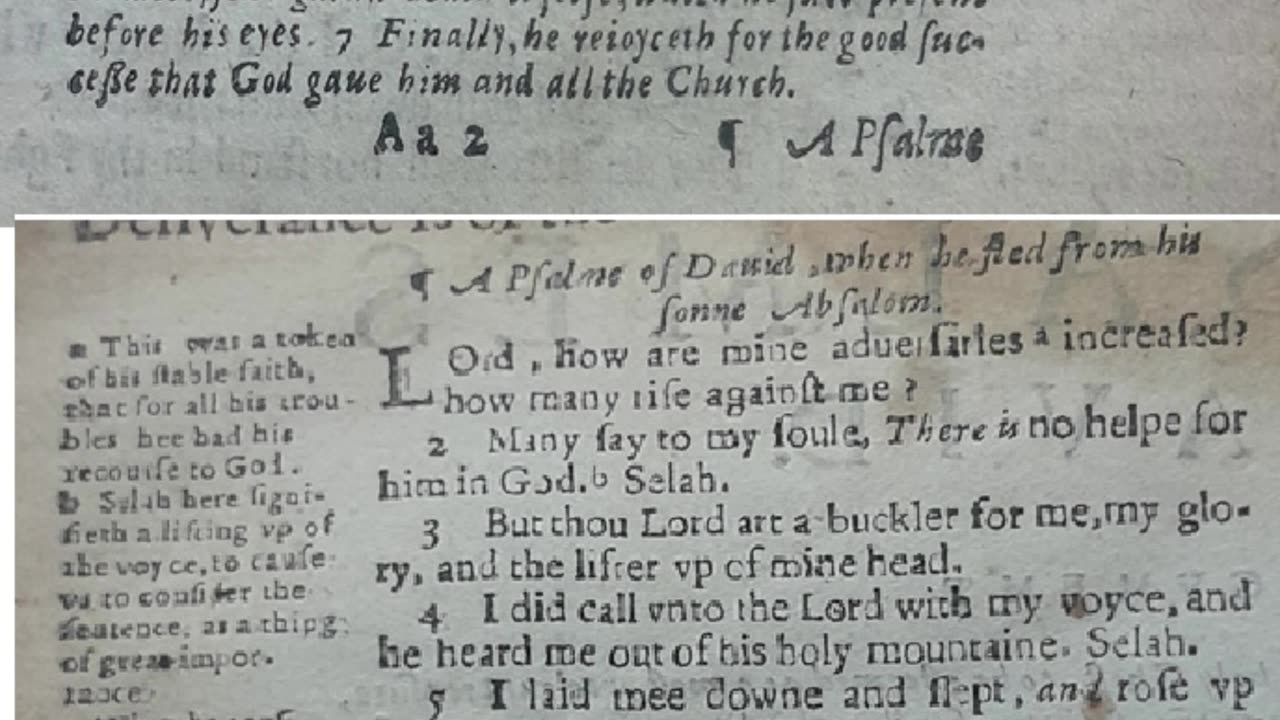 before his eyes. 7 Finally, he reioyceth for the good ſuc-
ceſſe that God gaue him and all the Church.
A a 2 ¶ A Pſalme
¶ A Pſalme of Dauid, when he fled from his
ſonne Abſalom.
a This was a token
of his ſtable faith,
that for all his trou-
bles hee had his
recourſe to God.
b Selah here ſigni-
fieth a lifting vp of
the voyce, to cauſe
vs to conſider the
ſentence, as a thing
of great impor-
tance.
LOrd, how are mine aduerſaries a increaſed?
how many riſe againſt me?
2 Many ſay to my ſoule, There is no helpe for
him in God. b Selah.
3 But thou Lord art a buckler for me, my glo-
ry, and the lifter vp of mine head.
4 I did call vnto the Lord with my voyce, and
he heard me out of his holy mountaine. Selah.
5 I laid mee downe and ſlept, and roſe vp